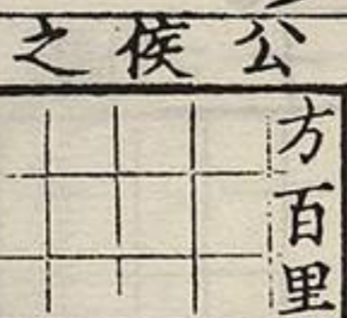 公侯之
方百里